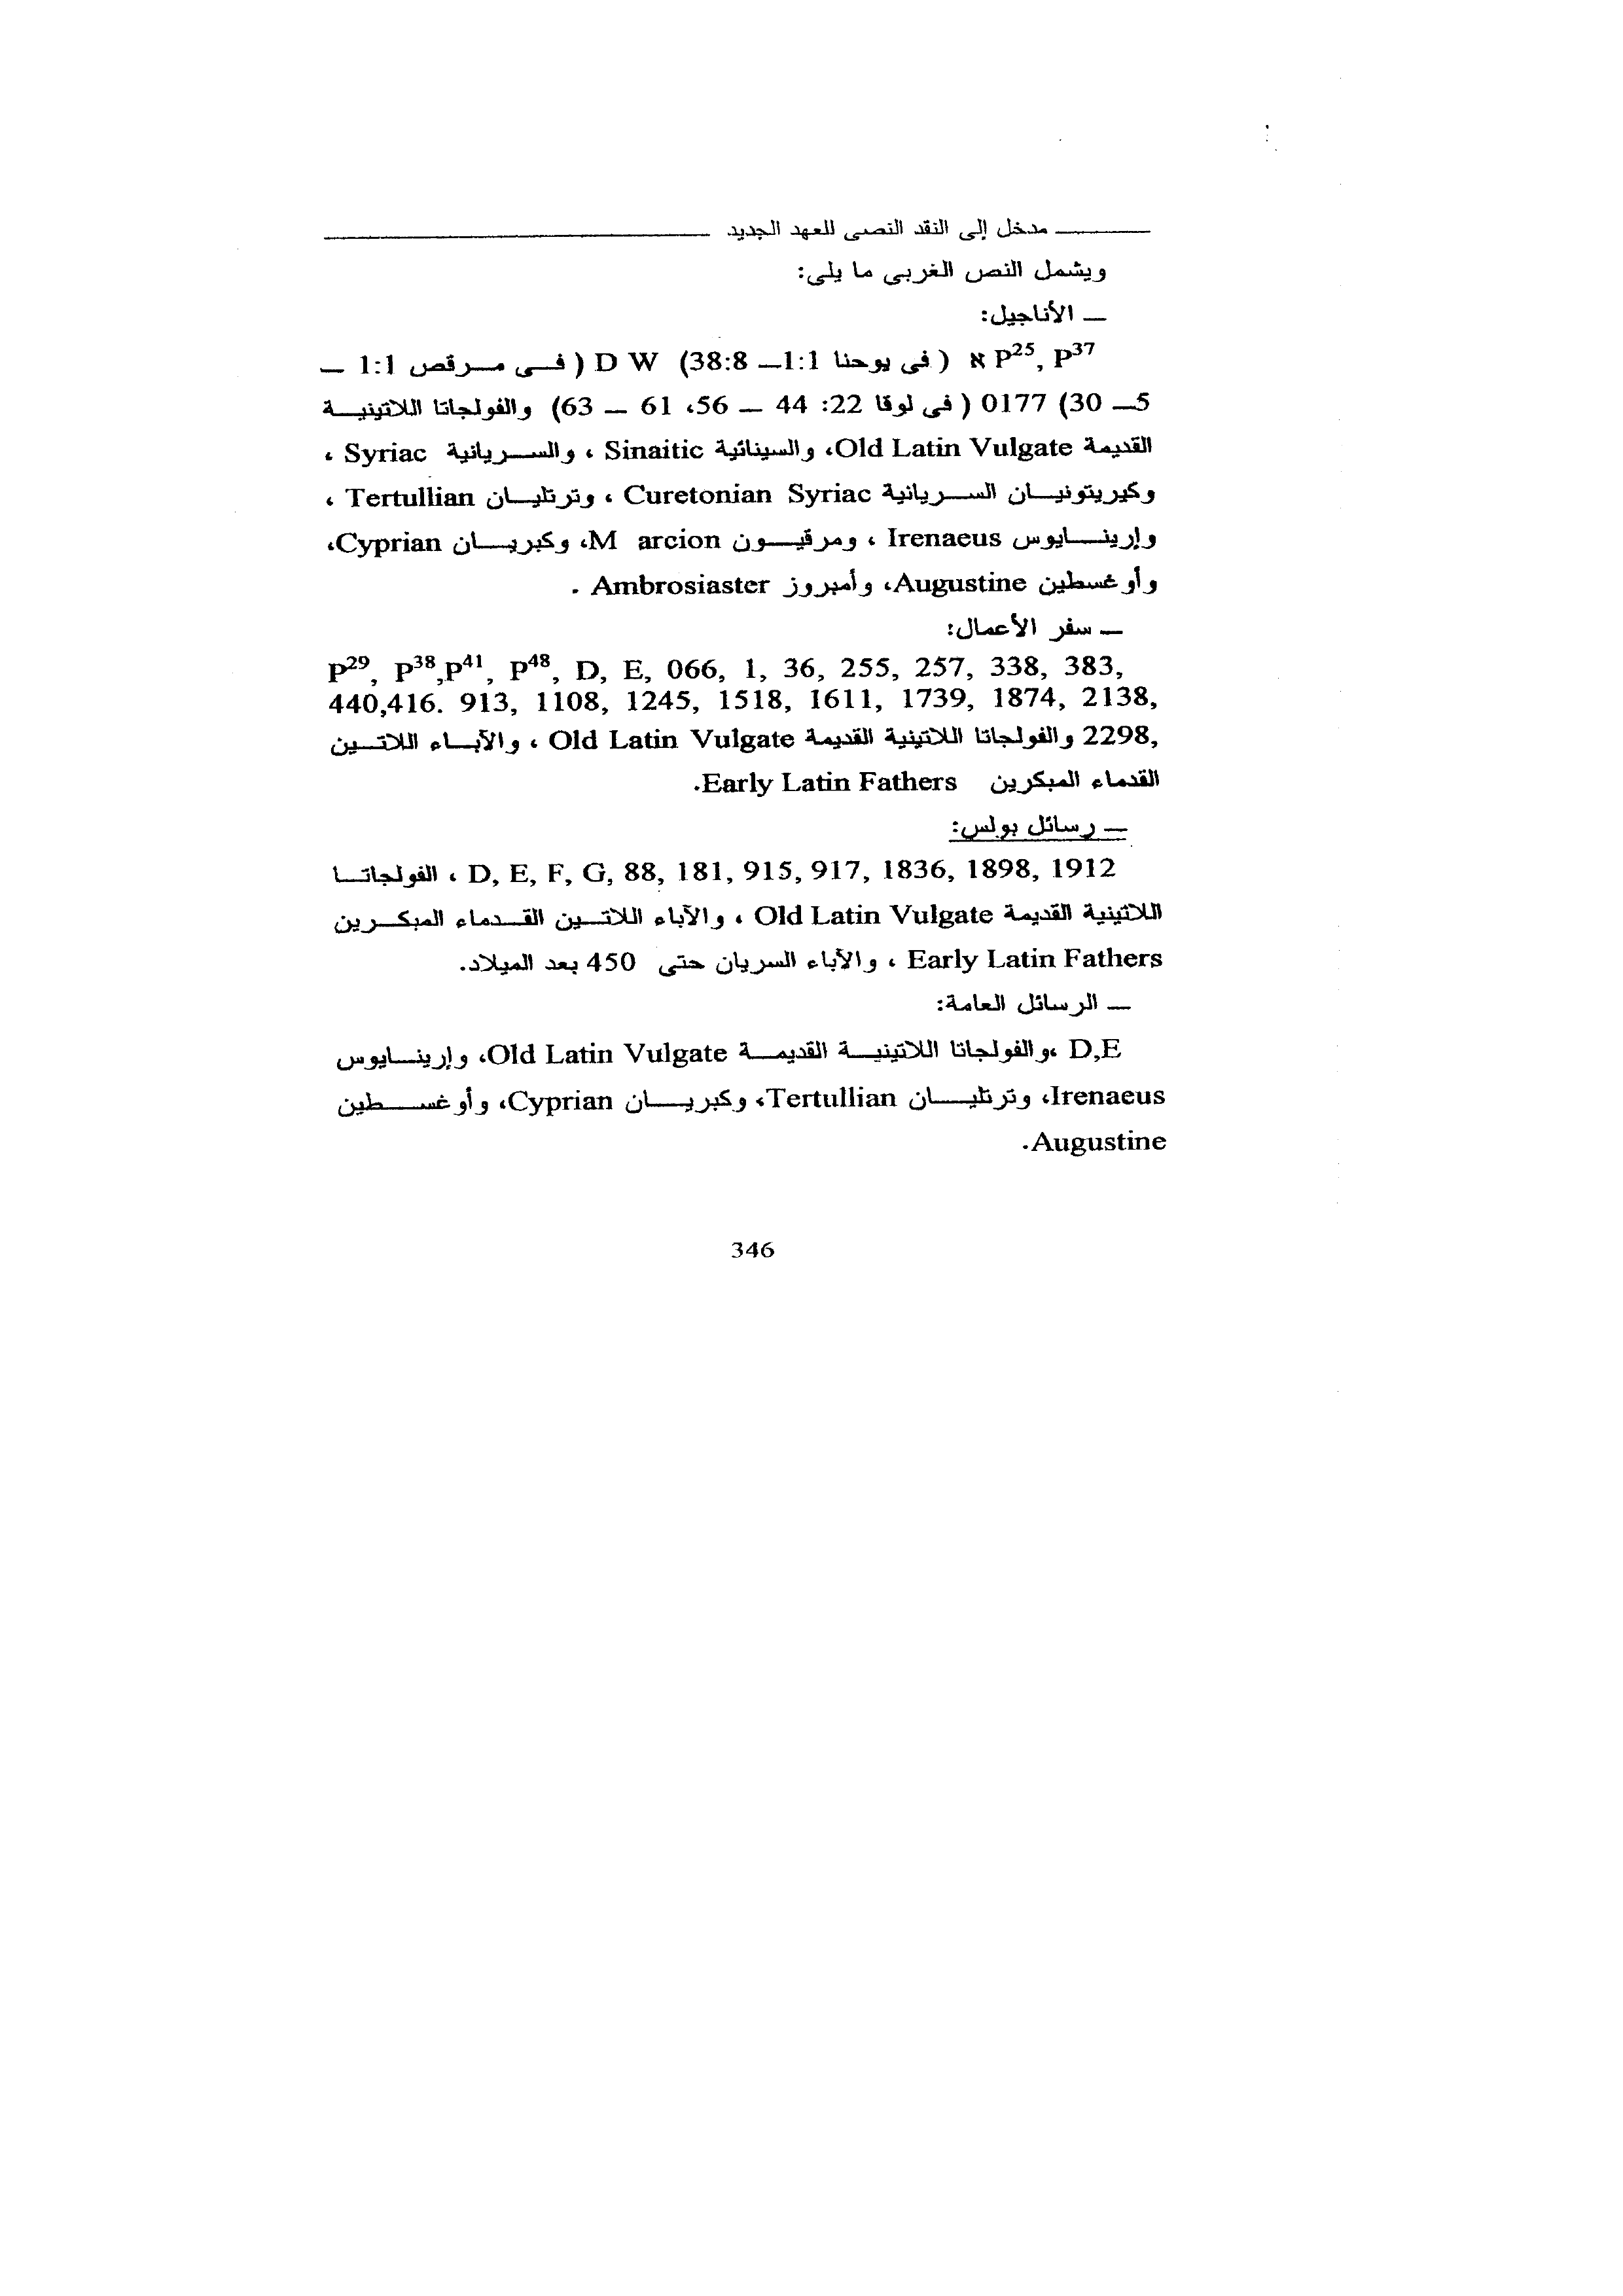 مدخل إلى النقد النصى للعهد الجديد
ويشمل النص الغربى ما يلى:
— الأناجيل:
P25, P37 א ( فى يوحنا 1:1— 38:8) D W ( فى مرقص 1:1 —
5— 30) 0177 ( فى لوقا 22: 44 — 56، 61 — 63) والفولجاتا اللاتينية
القديمة Old Latin Vulgate، والسينائية Sinaitic ، والسريانية Syriac ،
وكيريتونيان السريانية Curetonian Syriac ، وترتليان Tertullian ،
وإرينايوس Irenaeus ، ومرقيون M arcion، وكبريان Cyprian،
وأوغسطين Augustine، وأمبروز Ambrosiaster .
— سفر الأعمال:
P29, P38,P41, P48, D, E, 066, 1, 36, 255, 257, 338, 383,
440,416. 913, 1108, 1245, 1518, 1611, 1739, 1874, 2138,
2298, والفولجاتا اللاتينية القديمة Old Latin Vulgate ، والآباء اللاتين
القدماء المبكرين Early Latin Fathers.
— رسائل بولس:
D, E, F, G, 88, 181, 915, 917, 1836, 1898, 1912 ، الفولجاتا
اللاتينية القديمة Old Latin Vulgate ، والآباء اللاتين القدماء المبكرين
Early Latin Fathers ، والآباء السريان حتى 450 بعد الميلاد.
— الرسائل العامة:
D,E ،والفولجاتا اللاتينية القديمة Old Latin Vulgate، وإرينايوس
Irenaeus، وترتليان Tertullian، وكبريان Cyprian، وأوغسطين
Augustine.
346